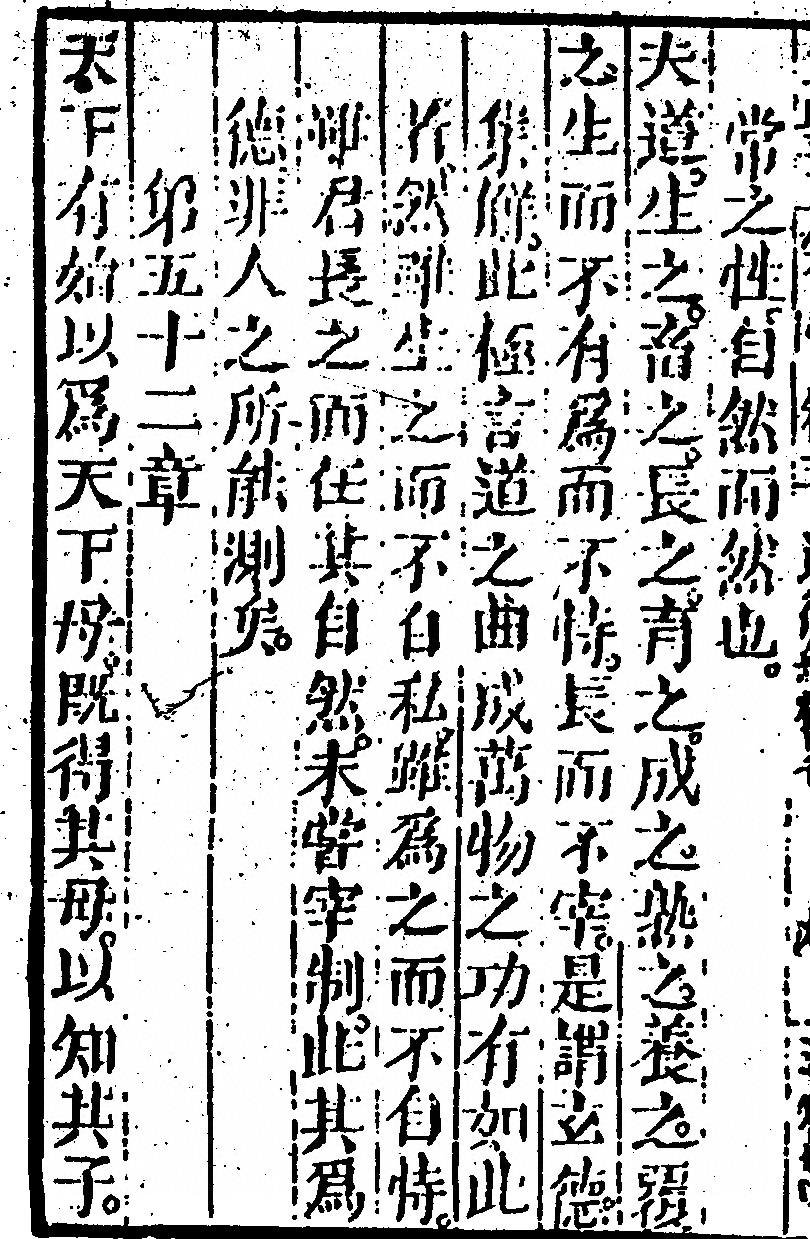 常之性。自然而然也。
夫道生之。畜之。長之。育之。成之。熟之。養之。覆
之。生而不有爲而不恃。長而不宰。是謂玄德。
集解。此極言道之曲成萬物之功有如此
者。然雖生之而不自私。雖爲之而不自恃。
雖君長之而任其自然。未嘗宰制。此其爲
德非人之所能測矣。
第五十二章
天下有始以爲天下母。既得其母。以知其子。